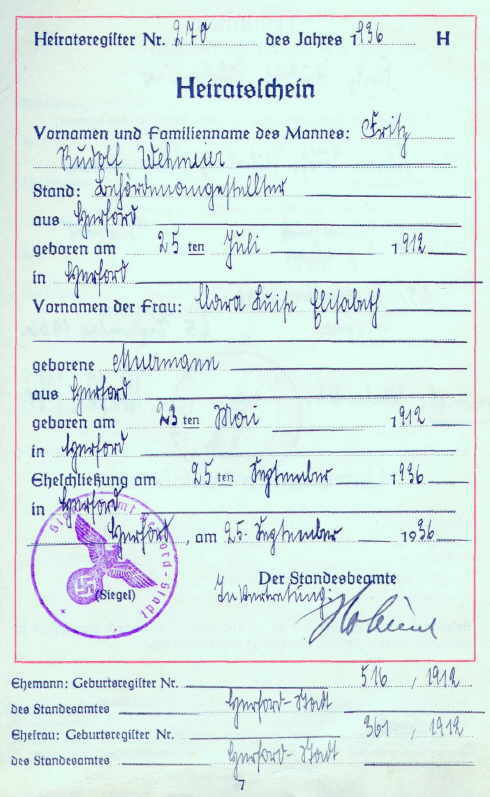 Heiratsregister Nr. 270 des Jahres 1936 H
Heiratsschein
Vornamen und Familienname des Mannes: Fritz
Rudolf Wehmeier
Stand: Behördenangestellter
aus Herford
geboren am 25 ten Juli 1912
in Herford
Vornamen der Frau: Clara Luise Elisabeth
geborene Murmann
aus Herford
geboren am 23 ten Mai 1912
in Herford
Eheschließung am 25 ten September 1936
in Herford
Herford, am 25. September 1936
Herford-Stadt
(Siegel)
Der Standesbeamte
In Vertretung:
Ehemann: Geburtsregister Nr. 516, 1912
des Standesamtes Herford-Stadt
Ehefrau: Geburtsregister Nr. 361, 1912
des Standesamtes Herford-Stadt
7